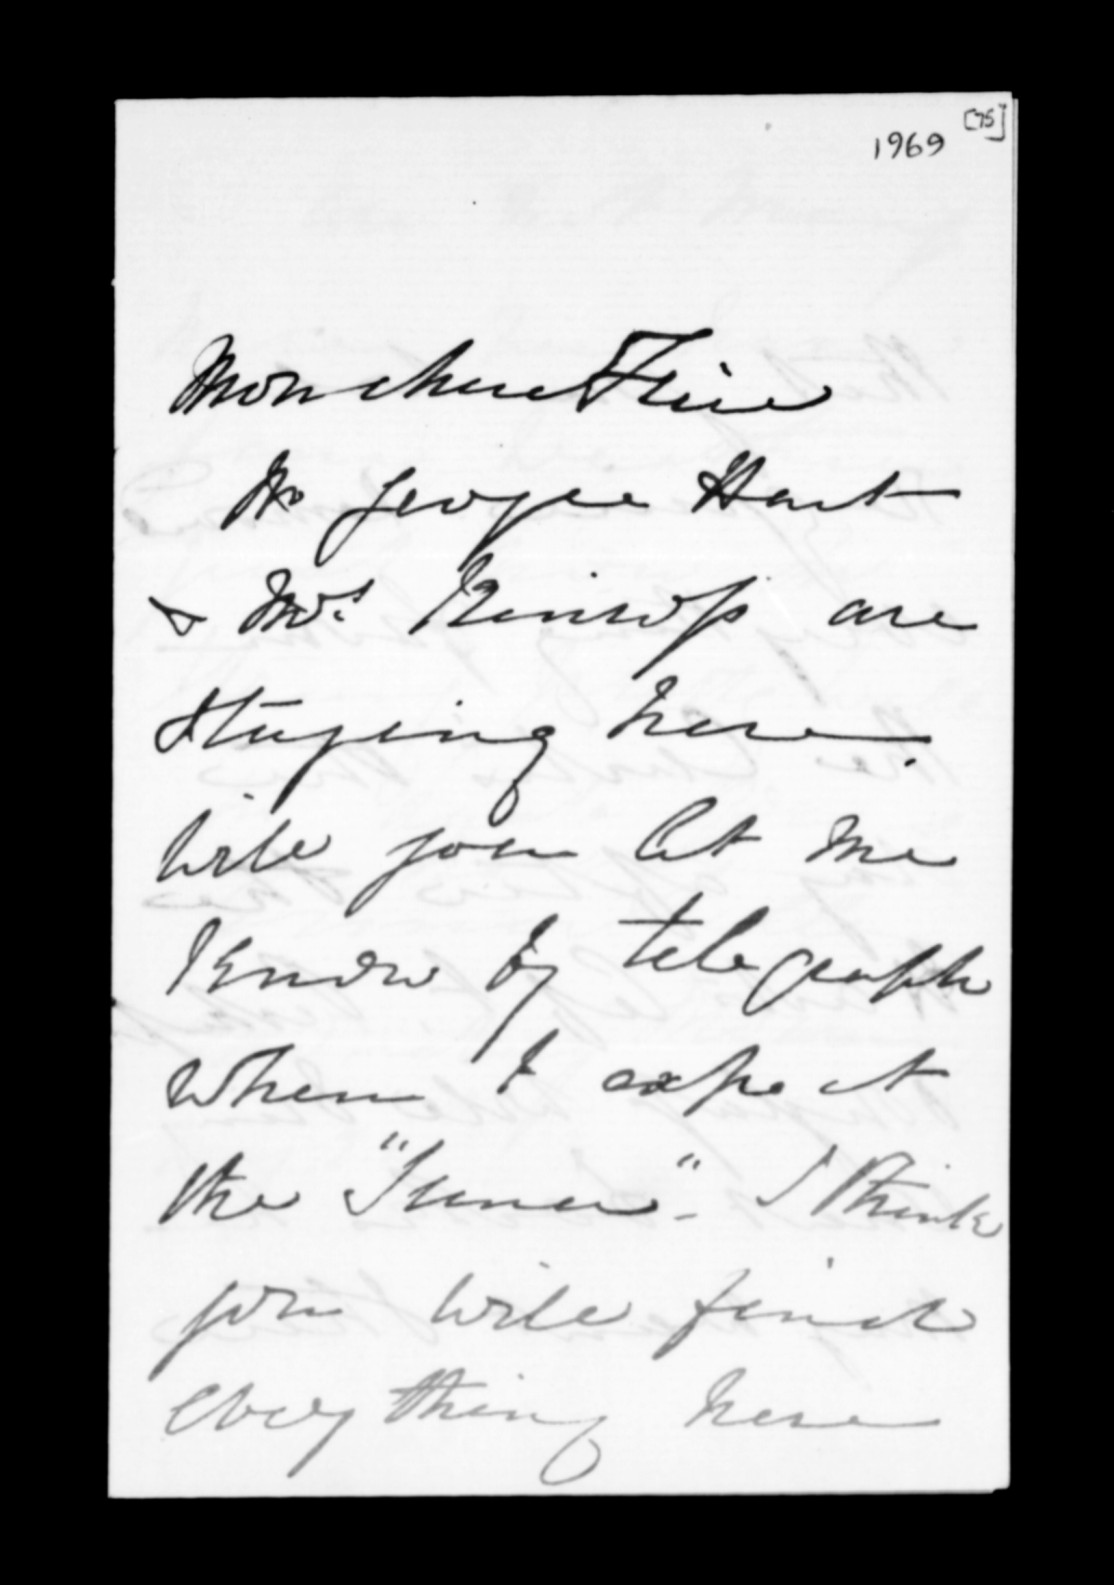 [75]
1969
Mon chere Frère
Mr George Hart
& Mrs. are
staying here.
Will you let me
know by telegraph
when to expect
the "Luna". I think
you will find
everything here